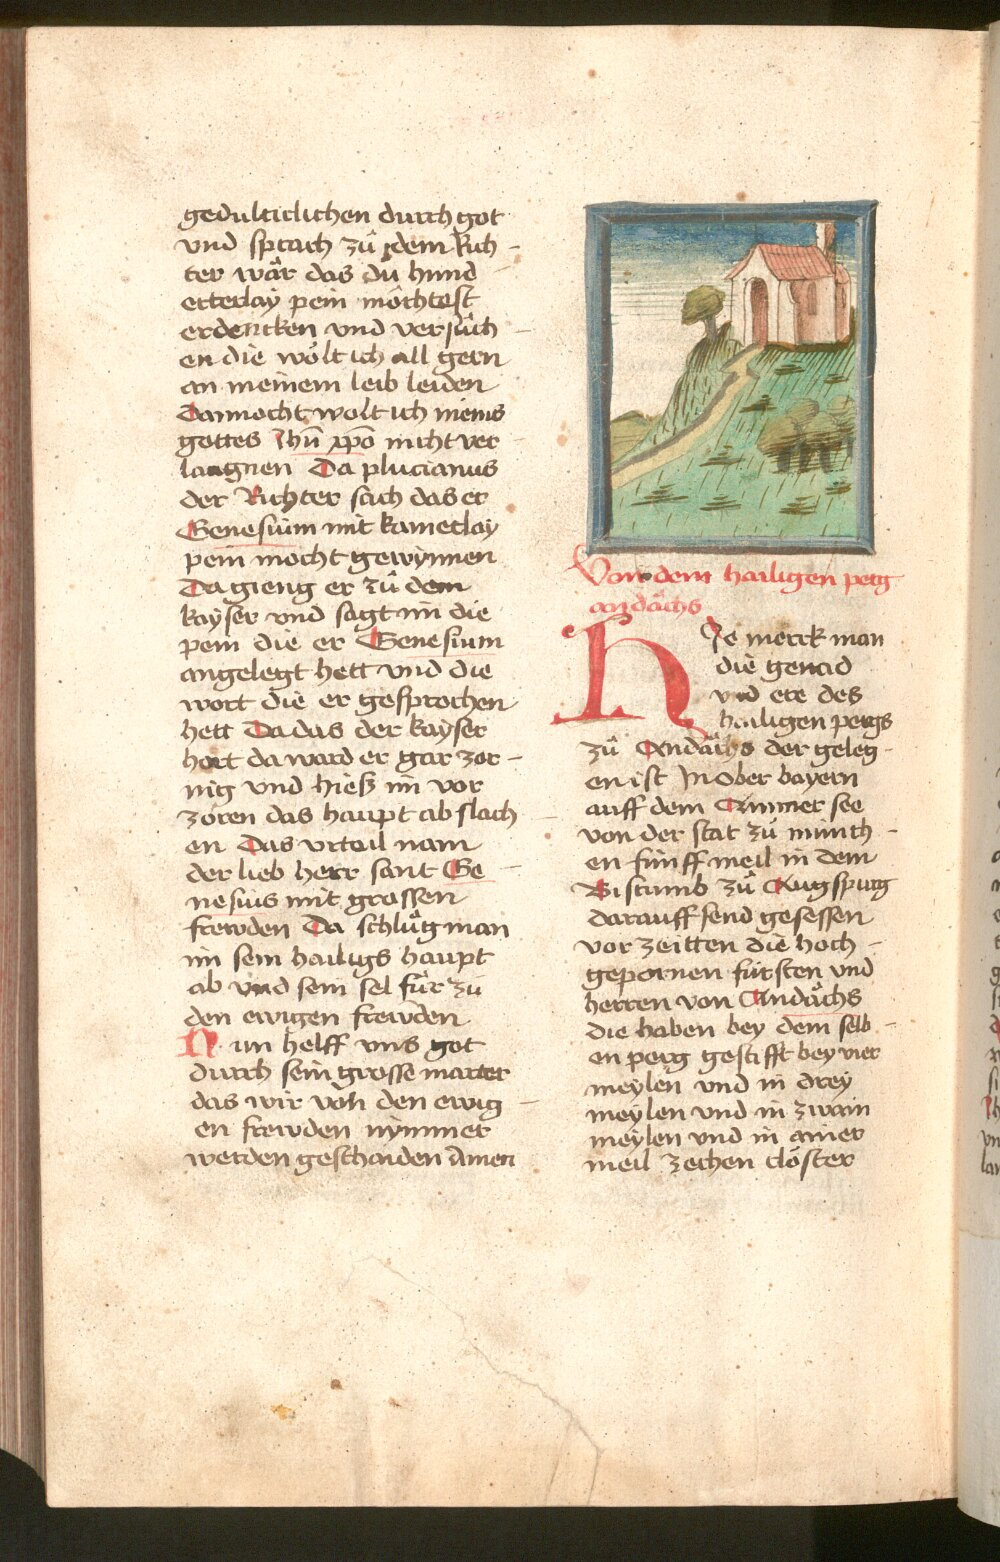 gedulticlichen durch got
vnd sprach zů dem Rich-
ter wår das du hund
ertterlay pein möchtest
erdencken vnd versůch-
en die wolt ich all gern
an meinem leib leiden
Dannocht wolt ich meins
gottes Jhu̅ xp̅o nicht ver-
laugnen Da plucianus
der Richter sach das er
Genesium mit kainerlay
pein mocht gewynnen
Da gieng er zů dem
kayser vnd sagt im die
pein die er Genesium
angelegt hett vnd die
wort die er gesprochen
hett Da das der kayser
hort da ward er gar zor-
nig vnd hieß im vor
zoren das haupt ab slach-
en Das vrtail nam
der lieb herr sant Ge-
nesius mit grossen
frewden Da schlůg man
im sein hailigs haupt
ab vnd sein sel fůr zů
den ewigen frewden
Nun helff vns got
durch sein grosse marter
das wir von den ewig-
en frewden nymmer
werden geschaiden Amen
Von dem hailigen perg
andåchs
HJe merck man
die genad
vnd ere des
hailigen pergs
zů Andåchs der geleg-
en ist Jn Ober bayern
auff dem Ammer see
von der stat zů münch-
en fünff meil in dem
Bistumb zů Augspurg
darauff send gesessen
vor zeitten die hoch-
gepornen fürsten vnd
herren von Andåchs
die haben bey dem selb-
en perg gestifft bey vier
meylen vnd in drey
meylen vnd in zwain
meylen vnd in ainer
meil zechen clöster